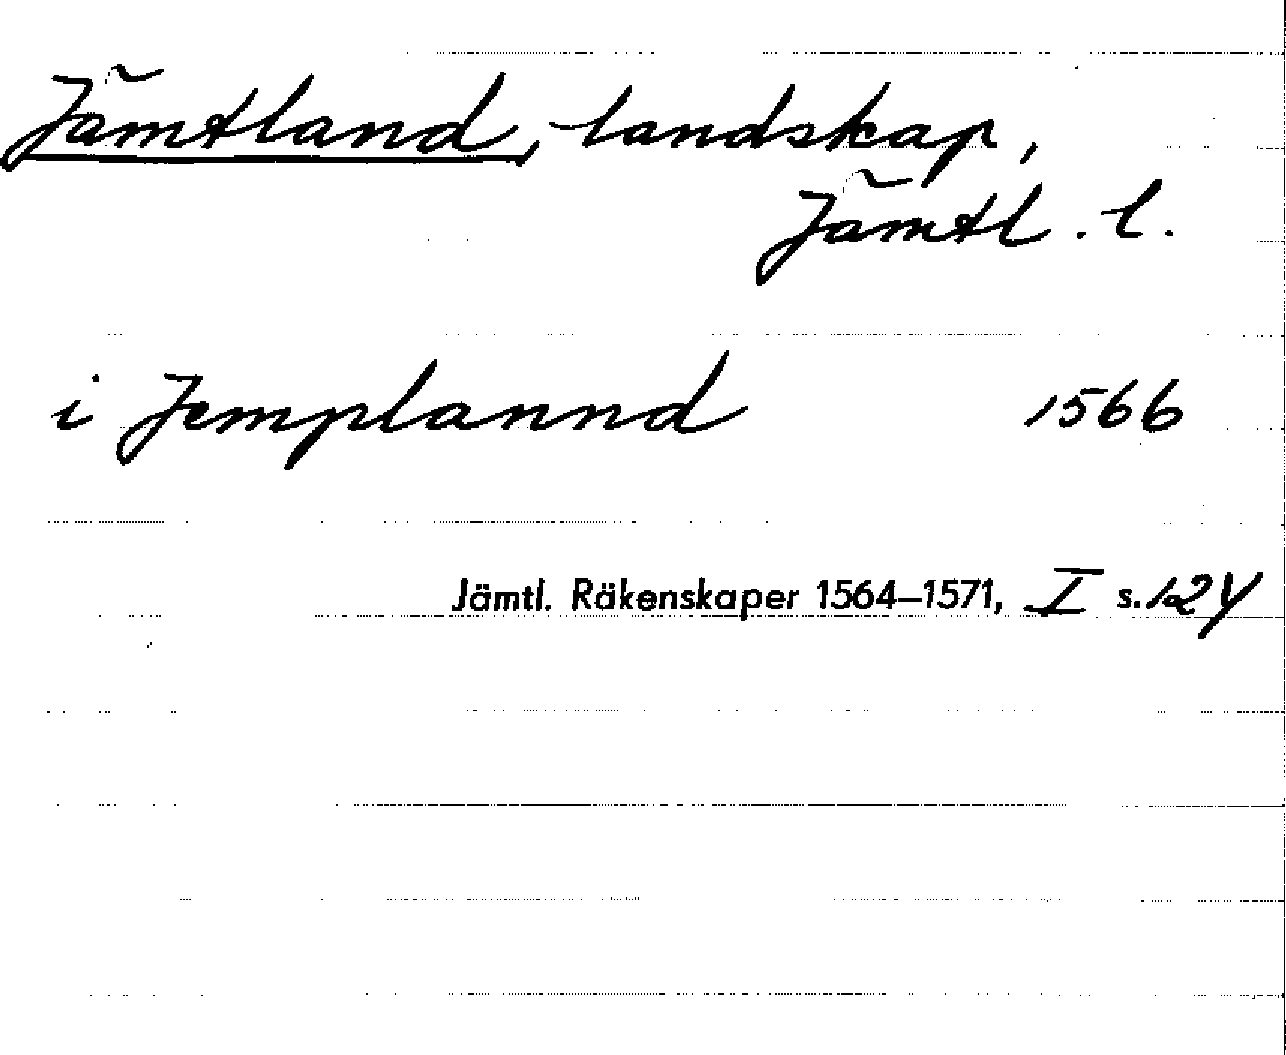 Jämtland, landskap,
Jämtl. l.
i Jemplannd 1566
Jämtl. Räkenskaper 1564–1571, I s. 124